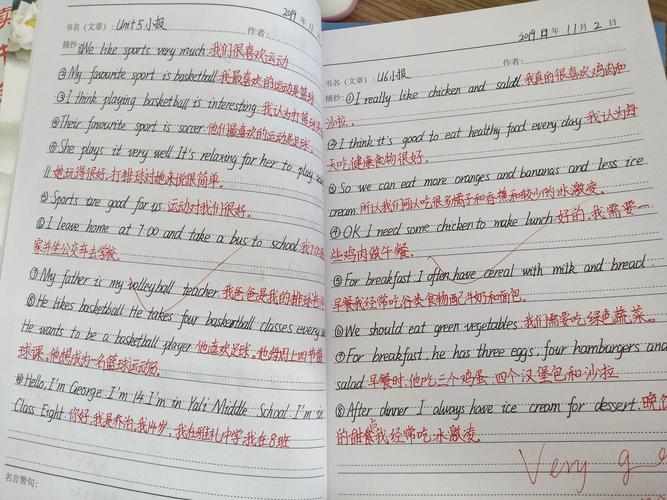 2019 11
书名（文章）：Unit 5 小报 作者：
摘抄：①We like sports very much 我们很喜欢运动
②My favourite sport is basketball 我最喜欢的运动是篮球
③I think playing basketball is interesting 我认为打篮球
④Their favourite sport is soccer 他们最喜欢的运动是足球
⑤She plays it very well It's relaxing for her to play
ll 她玩得很好，打排球对她来说很简单。
⑥Sports are good for us 运动对我们很好。
⑥I leave home at 7:00 and take a bus to school 我7:00
家并坐公交车去学校。
⑦My father is my volleyball teacher 我爸爸是我的排球
⑧He takes basketball He takes four basketball classes every
He wants to be a basketball player 他喜欢足球，他每周上四节
球课，他想成为一名篮球运动员。
⑨Hello, I'm George I'm 14 I'm in Yali Middle School I'm in
Class Eight 你好，我是乔治，我14岁，我在雅礼中学，我在8班
名言警句：
2019 年 11 月 2 日
书名（文章）：U6小报 作者：
摘抄：①I really like chicken and salad 我真的很喜欢鸡肉和
沙拉。
②I think it's good to eat healthy food every day 我认为每
天吃健康食物很好。
③So we can eat more oranges and bananas and less ice
cream 所以我们可以吃很多橘子和香蕉和较少的冰激凌。
④OK I need some chicken to make lunch 好的，我需要一
些鸡肉做午餐。
⑤For breakfast I often have cereal with milk and bread
早餐我经常吃谷类食物配牛奶和面包。
⑥We should eat green vegetables 我们需要吃绿色蔬菜。
⑦For breakfast, he has three eggs, four hamburgers and
salad 早餐时，他吃三个鸡蛋 四个汉堡包和沙拉
⑧After dinner I always have ice cream for dessert. 晚
的甜餐我经常吃冰激凌。
Very